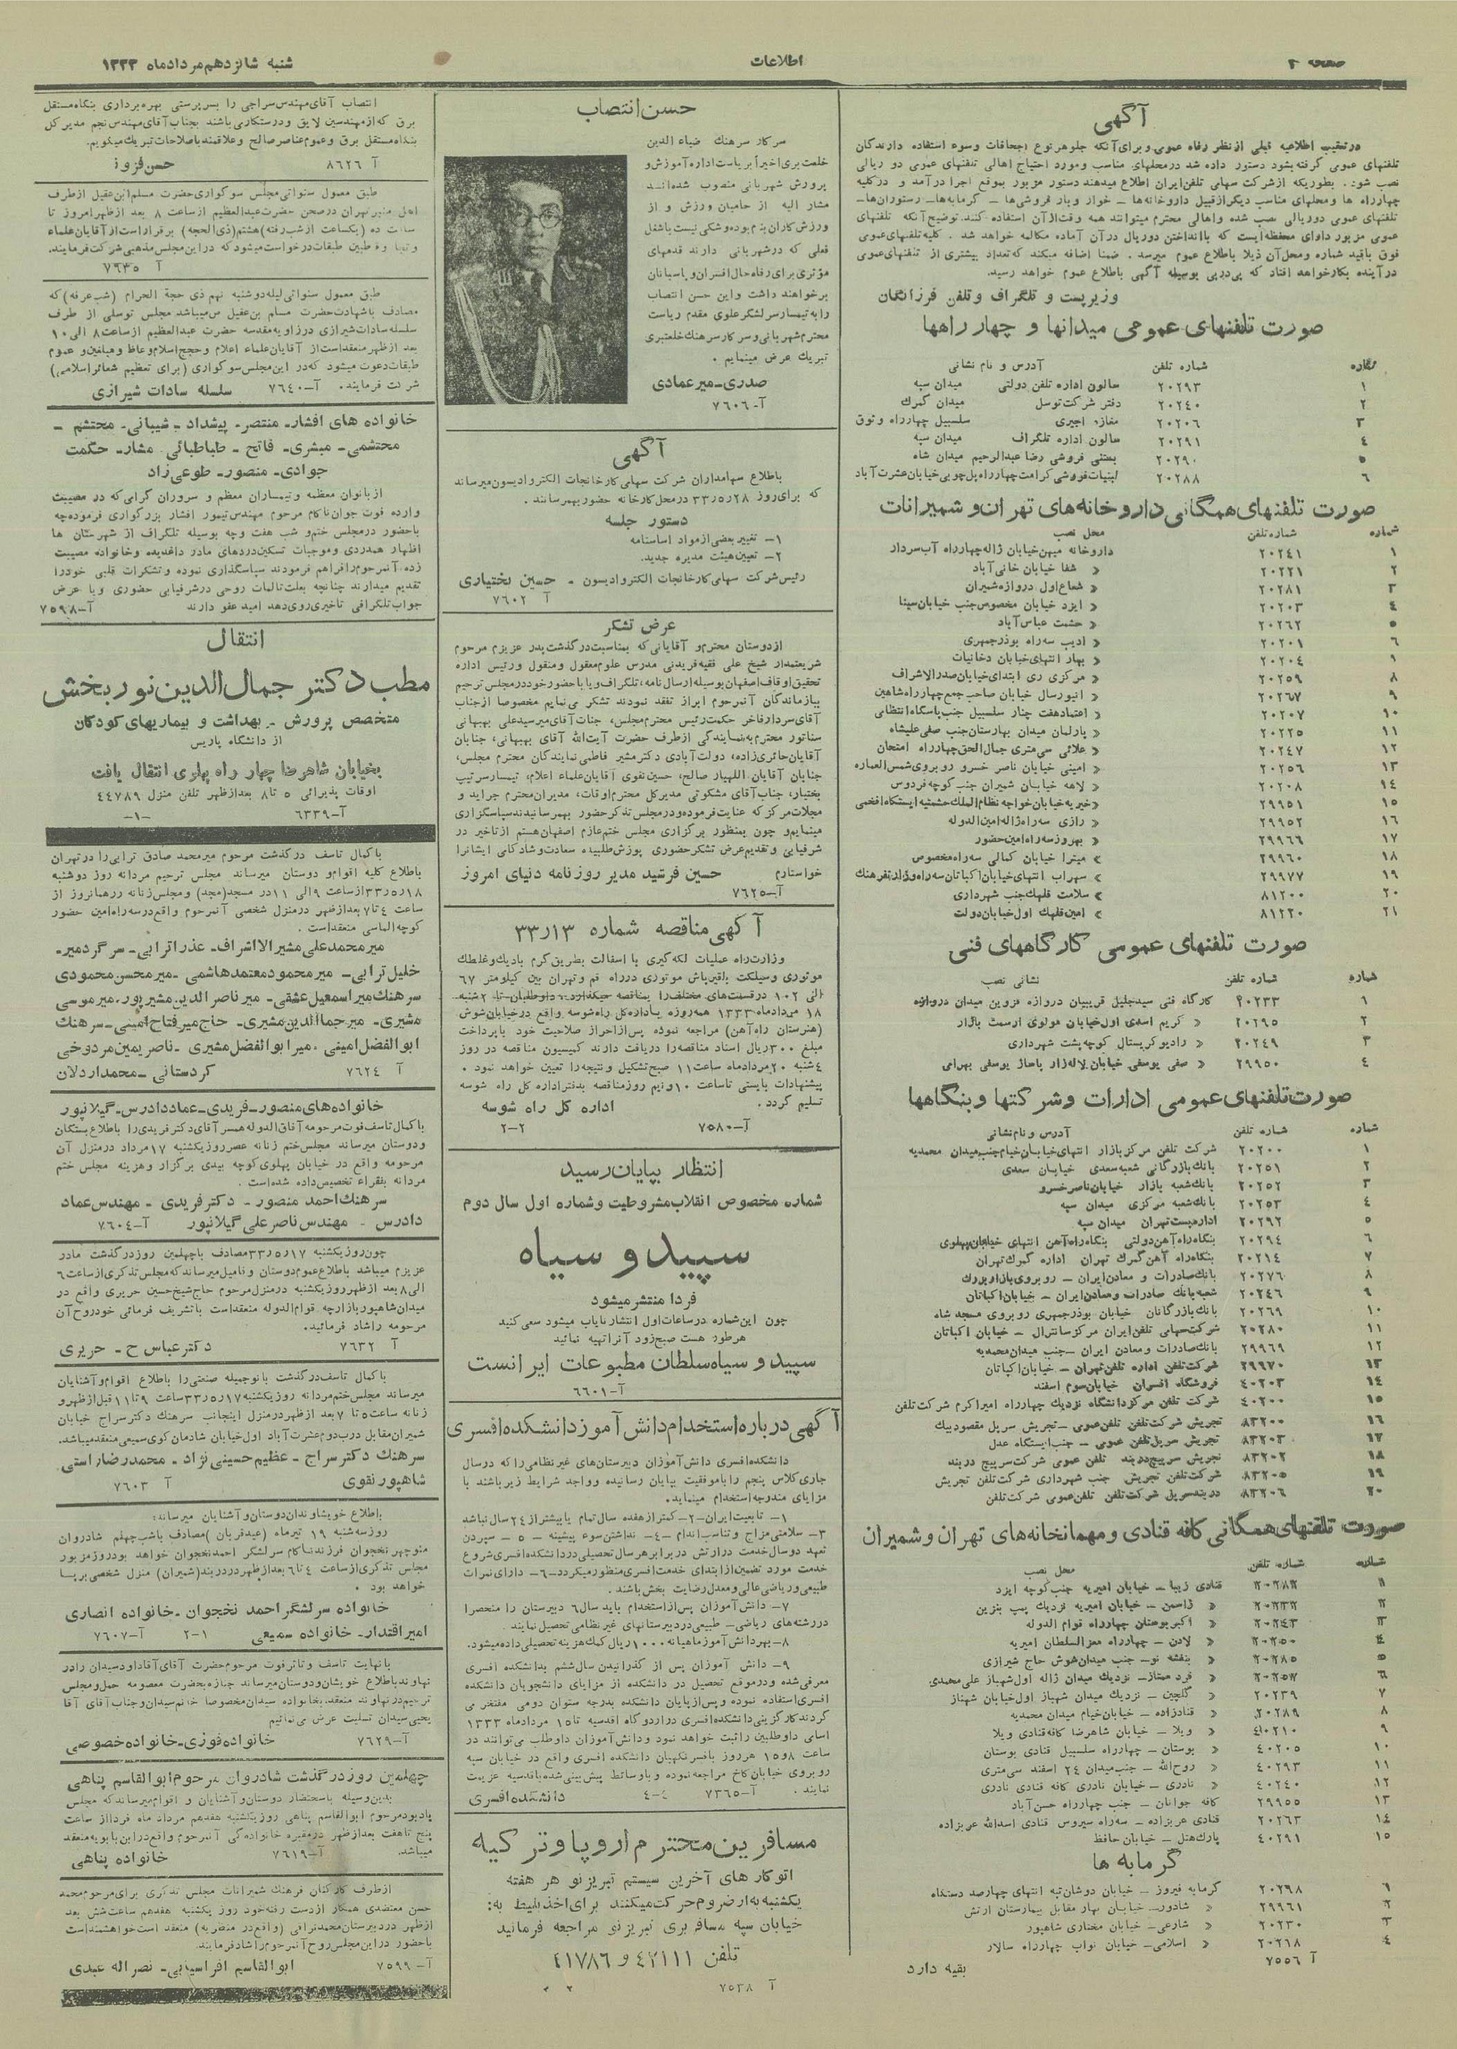 صفحه ۲
اطلاعات
شنبه شانزدهم مردادماه ۱۳۳۳
آگهی
در تعقیب اطلاعیه قبلی از نظر رفاه عمومی و برای آنکه جلو هر نوع اجحافات وسوء استفاده دارندگان
تلفنهای عمومی گرفته بشود دستور داده شد در محلهای مناسب و مورد احتیاج اهالی تلفنهای عمومی دو ریالی
نصب شود. بطوریکه از شرکت سهامی تلفن ایران اطلاع میدهند دستور مزبور بموقع اجرا درآمد و در کلیه
چهارراه ها و محلهای مناسب دیگر از قبیل داروخانه‌ها – خوار و بار فروشی‌ها – گرمابه‌ها – رستوران‌ها –
تلفنهای عمومی دوریالی نصب شده و اهالی محترم میتوانند همه وقت از آن استفاده کنند. توضیح آنکه تلفنهای
عمومی مزبور دارای محفظه ایست که با انداختن دوریال در آن آماده مکالمه خواهد شد. کلیه تلفنهای عمومی
فوق باقید شماره و محل آن ذیلا باطلاع عموم میرسد. ضمنا اضافه میکند که تعداد بیشتری از تلفنهای عمومی
در آینده بکار خواهد افتاد که پی در پی بوسیله آگهی باطلاع عموم خواهد رسید.
وزیر پست و تلگراف و تلفن فرزانگان
صورت تلفنهای عمومی میدانها و چهارراهها
شماره شماره تلفن آدرس و نام نشانی
۱ ۲۰۲۹۳ سالون اداره تلفن دولتی میدان سپه
۲ ۲۰۲۴۰ دفتر شرکت توسل میدان گمرک
۳ ۲۰۲۰۶ مغازه اجیری سلسبیل چهارراه وثوق
۴ ۲۰۲۹۱ سالون اداره تلگراف میدان سپه
۵ ۲۰۲۹۰ بستنی فروشی رضا عبدالرحیم میدان شاه
۶ ۲۰۲۸۸ لبنیات فروشی کرامت چهارراه پل چوبی خیابان عشرت آباد
صورت تلفنهای همگانی داروخانه‌های تهران و شمیرانات
شماره شماره تلفن محل نصب
۱ ۲۰۲۴۱ داروخانه میهن خیابان ژاله چهارراه آب سردار
۲ ۲۰۲۲۱ « شفا خیابان خانی آباد
۳ ۲۰۲۸۱ « شعاع اول دروازه شمیران
۴ ۲۰۲۰۳ « ایزد خیابان مخصوص جنب خیابان سینا
۵ ۲۰۲۶۲ « حشمت عباس آباد
۶ ۲۰۲۰۱ « ادیب سه راه بوذرجمهری
۲۰۲۰۴ « بهار انتهای خیابان دخانیات
۸ ۲۰۲۵۹ « مرکزی ری ابتدای خیابان صدرالاشراف
۹ ۲۰۲۶۷ « انیورسال خیابان صاحب جمع چهارراه شاهین
۱۰ ۲۰۲۰۷ « اعتماد هفت چنار سلسبیل جنب پاسگاه انتظامی
۱۱ ۲۰۲۲۵ « پارلمان میدان بهارستان جنب صفی علیشاه
۱۲ ۲۰۲۴۷ « علائی سی متری جمال الحق چهارراه امتحان
۱۳ ۲۰۲۵۶ « امینی خیابان ناصر خسرو روبروی شمس العماره
۱۴ ۲۰۲۰۸ « لاهه خیابان شمیران جنب کوچه فردوس
۱۵ ۲۹۹۵۱ « خیریه خیابان خواجه نظام الملک حشمتیه ایستگاه افخمی
۱۶ ۲۹۹۵۲ « رازی سه راه ژاله امین الدوله
۱۷ ۲۹۹۶۶ « بهروز سه راه امین حضور
۱۸ ۲۹۹۶۰ « میترا خیابان کمالی سه راه مخصوص
۱۹ ۲۹۹۷۷ « سهراب انتهای خیابان اکباتان سه راه وزارت فرهنگ
۲۰ ۸۱۲۰۰ « سلامت قلهک جنب شهرداری
۲۱ ۸۱۲۲۰ « امین قلهک اول خیابان دولت
صورت تلفنهای عمومی کارگاههای فنی
شماره شماره تلفن نشانی نصب
۱ ۲۰۲۳۳ کارگاه فنی سید جلیل قریبیان دروازه قزوین میدان دروازه
۲ ۲۰۲۹۵ « کریم اسدی اول خیابان مولوی از سمت بازار
۳ ۲۰۲۴۹ « رادیو کریستال کوچه پشت شهرداری
۴ ۲۹۹۵۰ « صفی یوسفی خیابان لاله زار پاساژ یوسفی بهرامی
صورت تلفنهای عمومی ادارات و شرکتها و بنگاهها
شماره شماره تلفن آدرس و نام نشانی
۱ ۲۰۲۰۰ شرکت تلفن مرکز بازار انتهای خیابان خیام جنب میدان محمدیه
۲ ۲۰۲۵۱ بانک بازرگانی شعبه سعدی خیابان سعدی
۳ ۲۰۲۵۲ بانک شعبه بازار خیابان ناصر خسرو
۴ ۲۰۲۵۳ بانک شعبه مرکزی میدان سپه
۵ ۲۰۲۹۲ اداره پست تهران میدان سپه
۶ ۲۰۲۹۴ بنگاه راه آهن دولتی بنگاه راه آهن انتهای خیابان پهلوی
۷ ۲۰۲۱۴ بنگاه راه آهن گمرک تهران اداره گمرک تهران
۸ ۲۰۲۷۶ بانک صادرات و معادن ایران – روبروی بازار بزرگ
۹ ۲۰۲۴۶ شعبه بانک صادرات و معادن ایران – خیابان اکباتان
۱۰ ۲۰۲۶۹ بانک بازرگانان خیابان بوذرجمهری روبروی مسجد شاه
۱۱ ۲۰۲۸۰ شرکت سهامی تلفن ایران مرکز سانترال – خیابان اکباتان
۱۲ ۲۹۹۶۹ بانک صادرات و معادن ایران – جنب میدان محمدیه
۱۳ ۲۹۹۷۰ شرکت تلفن اداره تلفن تهران – خیابان اکباتان
۱۴ ۴۰۲۰۳ فروشگاه افسران خیابان سوم اسفند
۱۵ ۴۰۲۰۰ شرکت تلفن مرکز دانشگاه نزدیک چهارراه امیر اکرم شرکت تلفن
۱۶ ۸۳۲۰۰ تجریش شرکت تلفن تلفن عمومی – تجریش سرپل مقصودبیک
۱۷ ۸۳۲۰۳ تجریش سرپل تلفن عمومی – جنب ایستگاه عدل
۱۸ ۸۳۲۰۲ تجریش سرپیچ دربند تلفن عمومی شرکت سرپیچ دربند
۱۹ ۸۳۲۰۵ شرکت تلفن تجریش جنب شهرداری شرکت تلفن تجریش
۲۰ ۸۳۲۰۶ دربند سرپل شرکت تلفن تلفن عمومی شرکت تلفن
صورت تلفنهای همگانی کافه قنادی و مهمانخانه‌های تهران و شمیران
شماره شماره تلفن محل نصب
۱ ۲۰۲۸۲ قنادی زیبا – خیابان امیریه جنب کوچه ایزد
۲ ۲۰۲۳۲ « ژاسمن – خیابان امیریه نزدیک پمپ بنزین
۳ ۲۰۲۴۳ « اکبر بوستان چهارراه قوام الدوله
۴ ۲۰۲۵۰ « لادن – چهارراه معزالسلطان امیریه
۵ ۲۰۲۸۵ « بنفشه نو – جنب میدان شوش حاج شیرازی
۶ ۲۰۲۵۷ « فرد ممتاز – نزدیک میدان ژاله اول شهباز علی محمدی
۷ ۲۰۲۳۹ « گلچین – نزدیک میدان شهباز اول خیابان شهناز
۸ ۲۰۲۸۹ « قنادزاده – خیابان خیام میدان محمدیه
۹ ۴۰۲۱۰ « ویلا – خیابان شاهرضا کافه قنادی ویلا
۱۰ ۴۰۲۰۵ « بوستان – چهارراه سلسبیل قنادی بوستان
۱۱ ۴۰۲۹۳ « روح الله – جنب میدان ۲۴ اسفند سی متری
۱۲ ۴۰۲۴۰ « نادری – خیابان نادری کافه قنادی نادری
۱۳ ۲۹۹۵۵ کافه جوانان – جنب چهارراه حسن آباد
۱۴ ۲۰۲۶۳ قنادی عربزاده – سه راه سیروس قنادی اسدالله عربزاده
۱۵ ۴۰۲۹۱ پارک هتل – خیابان حافظ
گرمابه ها
۱ ۲۰۲۹۸ گرمابه فیروز – خیابان دوشان تپه انتهای چهارصد دستگاه
۲ ۲۹۹۶۱ « شادور – خیابان بهار مقابل بیمارستان ارتش
۳ ۲۰۲۳۰ « شارعی – خیابان مختاری شاهپور
۴ ۲۰۲۱۸ « اسلامی – خیابان نواب چهارراه سالار
آ ۷۵۵۶ بقیه دارد
حسن انتصاب
سرکار سرهنگ ضیاءالدین
خلعت بری اخیراً بریاست اداره آموزش و
پرورش شهربانی منصوب شده اند
مشار الیه از حامیان ورزش و از
ورزش کاران بنام بوده و شکی نیست باشغل
فعلی که در شهربانی دارند قدمهای
مؤثری برای رفاه حال افسران و پاسبانان
برخواهند داشت و این حسن انتصاب
را به تیمسار سرلشگر علوی مقدم ریاست
محترم شهربانی و سرکار سرهنگ خلعتبری
تبریک عرض مینمایم.
صدری – میرعمادی
آ–۷۶۰۶
آگهی
باطلاع سهامداران شرکت سهامی کارخانجات الکترو ادیسون میرساند
که برای روز ۳۳٫۵٫۲۸ در محل کارخانه حضور بهمرسانند.
دستور جلسه
۱– تغییر بعضی از مواد اساسنامه
۲– تعیین هیئت مدیره جدید.
رئیس شرکت سهامی کارخانجات الکترو ادیسون – حسین بختیاری
آ ۷۶۰۲
عرض تشکر
از دوستان محترم و آقایانی که بمناسبت درگذشت پدر عزیزم مرحوم
شریعتمدار شیخ علی فقیه فریدنی مدرس علوم معقول و منقول و رئیس اداره
تحقیق اوقاف اصفهان بوسیله ارسال نامه، تلگراف و یا با حضور خود در مجلس ترحیم
ببازماندگان آنمرحوم ابراز تفقد نمودند تشکر می‌نمایم مخصوصا از جناب
آقای سردار فاخر حکمت رئیس محترم مجلس، جناب آقای میرسیدعلی بهبهانی
سناتور محترم به نمایندگی از طرف حضرت آیت‌الله آقای بهبهانی، جنابان
آقایان حائری زاده، دولت آبادی دکتر مشیر فاطمی نمایندگان محترم مجلس،
جنابان آقایان اللهیار صالح، حسین نقوی آقایان علماء اعلام، تیمسار سرتیپ
بختیار، جناب آقای مشکوتی مدیر کل محترم اوقات، مدیران محترم جراید و
مجلات مرکز که عنایت فرموده و در مجلس تذکر حضور بهم رسانیدند سپاسگزاری
مینمایم و چون بمنظور برگزاری مجلس ختم عازم اصفهان هستم از تاخیر در
شرفیابی و تقدیم عرض تشکر حضوری پوزش طلبیده سعادت و شادکامی ایشانرا
خواستارم حسین فرشید مدیر روزنامه دنیای امروز
آ–۷۶۲۵
آگهی مناقصه شماره ۳۳٫۱۳
وزارت راه عملیات لکه گیری با اسفالت بطریق گرم بادیک و غلطک
موتوری و سیلکت باقیرپاش موتوری در راه قم و تهران بین کیلومتر ۶۷
الی ۱۰۲ در قسمت‌های مختلف را بمناقصه میگذارد. داوطلبان تا ۲شنبه
۱۸ مردادماه ۱۳۳۳ همه روزه باداره کل راه شوسه واقع در خیابان شوش
(هنرستان راه آهن) مراجعه نموده پس از احراز صلاحیت خود با پرداخت
مبلغ ۳۰۰ ریال اسناد مناقصه را دریافت دارند کمیسیون مناقصه در روز
۴شنبه ۲۰ مردادماه ساعت ۱۱ صبح تشکیل و نتیجه را تعیین خواهد نمود.
پیشنهادات بایستی تا ساعت ۱۰ و نیم روز مناقصه بدفتر اداره کل راه شوسه
تسلیم گردد. اداره کل راه شوسه
آ–۷۵۸۰ ۲–۲
انتظار بپایان رسید
شماره مخصوص انقلاب مشروطیت و شماره اول سال دوم
سپید و سیاه
فردا منتشر میشود
چون این شماره در ساعات اول انتشار نایاب میشود سعی کنید
هر طور هست صبح زود آنرا تهیه نمائید
سپید و سیاه سلطان مطبوعات ایرانست
آ–۶۶۰۱
آگهی درباره استخدام دانش آموز دانشکده افسری
دانشکده افسری دانش آموزان دبیرستان‌های غیر نظامی را که در سال
جاری کلاس پنجم را با موفقیت بپایان رسانیده و واجد شرایط زیر باشند با
مزایای مندرجه استخدام مینماید.
۱– تابعیت ایران –۲– کمتر از هفده سال تمام یا بیشتر از ۲۴ سال نباشد
۳– سلامتی مزاج و تناسب اندام –۴– نداشتن سوء پیشینه –۵– سپردن
تعهد دو سال خدمت در ارتش در برابر هر سال تحصیلی در دانشکده افسری شروع
خدمت مورد تضمین از ابتدای خدمت افسری منظور میگردد –۶– دارای نمرات
طبیعی و ریاضی عالی و معدل رضایت بخش باشند.
۷– دانش آموزان پس از استخدام باید سال ۶ دبیرستان را منحصرا
در رشته‌های ریاضی – طبیعی در دبیرستانهای غیر نظامی تحصیل نمایند
۸– بهر دانش آموز ماهیانه ۱۰۰۰ ریال کمک هزینه تحصیلی داده میشود.
۹– دانش آموزان پس از گذرانیدن سال ششم بدانشکده افسری
معرفی شده و در موقع تحصیل در دانشکده از مزایای دانشجویان دانشکده
افسری استفاده نموده و پس از پایان دانشکده بدرجه ستوان دومی مفتخر می
گردند کارگزینی دانشکده افسری در اردوگاه اقدسیه تا ۱۵ مردادماه ۱۳۳۳
اسامی داوطلبین را ثبت خواهد نمود و دانش آموزان داوطلب می‌توانند در
ساعت ۸ و ۱۵ هر روز بافسر نگهبان دانشکده افسری واقع در خیابان سپه
روبروی خیابان کاخ مراجعه نموده و با وسائط پیش بینی شده باقدسیه عزیمت
نمایند. آ–۷۳۶۵ ۴–۴ دانشکده افسری
مسافرین محترم اروپا و ترکیه
اتوکار های آخرین سیستم تبریز نو هر هفته
یکشنبه به ارضروم حرکت میکنند برای اخذ بلیط به:
خیابان سپه مسافربری تبریز نو مراجعه فرمائید
تلفن ۴۲۱۱۱ و ۴۱۷۸۶
آ ۷۵۳۸
انتصاب آقای مهندس سراجی را بسرپرستی بهره برداری بنگاه مستقل
برق که از مهندسین لایق و درستکاری باشند بجناب آقای مهندس نجم مدیر کل
بنگاه مستقل برق و عموم عناصر صالح و علاقمند باصلاحات تبریک میگویم.
آ ۸۶۲۶ حسن فزوز
طبق معمول سنواتی مجلس سوگواری حضرت مسلم ابن عقیل از طرف
اهل منبر تهران در صحن حضرت عبدالعظیم از ساعت ۸ بعد از ظهر امروز تا
ساعت ده (یکساعت از شب رفته) هشتم (ذی الحجه) برقرار است از آقایان علماء
و طبقات درخواست میشود که در این مجلس مذهبی شرکت فرمایند.
آ ۷۶۳۵
طبق معمول سنواتی لیله دوشنبه نهم ذی حجة الحرام (شب عرفه) که
مصادف با شهادت حضرت مسلم بن عقیل می‌باشد مجلس توسلی از طرف
سلسله سادات شیرازی در زاویه مقدسه حضرت عبدالعظیم از ساعت ۸ الی ۱۰
بعد از ظهر منعقد است از آقایان علماء اعلام و حجج اسلام و عاظ و مبلغین و عموم
طبقات دعوت میشود که در این مجلس سوگواری (برای تعظیم شعائر اسلامی)
شرکت فرمایند. آ–۷۶۴۰ سلسله سادات شیرازی
خانواده های افشار – منتصر – پیشداد – شیبانی – محتشم –
محتشمی – مبشری – فاتح – طباطبائی مشار – حکمت
جوادی – منصور – طوعی زاد
از بانوان معظمه و تیمساران معظم و سروران گرامی که در مصیبت
وارده فوت جوان ناکام مرحوم مهندس تیمور افشار بزرگواری فرموده چه
با حضور در مجلس ختم و شب هفت و چه بوسیله تلگراف از شهرستان ها
اظهار همدردی و موجبات تسکین دردهای مادر داغدیده و خانواده مصیبت
زده آنمرحوم را فراهم فرمودند سپاسگذاری نموده و تشکرات قلبی خود را
تقدیم میدارند چنانچه بعلت تالمات روحی در شرفیابی حضوری و یا عرض
جواب تلگرافی تاخیری روی دهد امید عفو دارند آ–۷۵۹۸
انتقال
مطب دکتر جمال‌الدین نوربخش
متخصص پرورش – بهداشت و بیماریهای کودکان
از دانشگاه پاریس
بخیابان شاهرضا چهار راه پهلوی انتقال یافت
اوقات پذیرائی ۵ تا ۸ بعد از ظهر تلفن منزل ۴۴۷۸۹
آ–۶۳۳۹ –۱–
با کمال تاسف درگذشت مرحوم میرمحمد صادق ترابی را در تهران
باطلاع کلیه اقوام و دوستان میرساند مجلس ترحیم مردانه روز دوشنبه
۳۳٫۵٫۱۸ از ساعت ۹ الی ۱۱ در مسجد (مجد) و مجلس زنانه در همانروز از
ساعت ۴ تا ۷ بعد از ظهر در منزل شخصی آنمرحوم واقع در سه راه امین حضور
کوچه الماسی منعقد است.
میرمحمد علی مشیرالاشراف – عذرا ترابی – سرگرد میر –
خلیل ترابی – میرمحمود معتمد هاشمی – میرمحسن محمودی
سرهنگ میراسمعیل عشقی – میر ناصرالدین مشیرپور، میرموسی
مشیری – میرجمال‌الدین مشیری – حاج میرفتاح امینی – سرهنگ
ابوالفضل امینی، میر ابوالفضل مشیری – ناصر یمین مردوخی
کردستانی – محمد اردلان آ ۷۶۲۴
خانواده های منصور – فریدی – عماد دادرس – گیلانپور
با کمال تاسف فوت مرحومه آفاق الدوله همسر آقای دکتر فریدی را باطلاع بستگان
و دوستان میرساند مجلس ختم زنانه عصر روز یکشنبه ۱۷ مرداد در منزل آن
مرحومه واقع در خیابان پهلوی کوچه بیدی برگزار و هزینه مجلس ختم
مردانه بفقراء تخصیص داده شده است.
سرهنگ احمد منصور – دکتر فریدی – مهندس عماد
دادرس – مهندس ناصر علی گیلانپور آ–۷۶۰۴
چون روز یکشنبه ۳۳٫۵٫۱۷ مصادف با چهلمین روز درگذشت مادر
عزیزم میباشد باطلاع عموم دوستان و فامیل میرساند که مجلس تذکری از ساعت ۶
الی ۸ بعد از ظهر روز یکشنبه در منزل مرحوم حاج شیخ حسین حریری واقع در
میدان شاهپور بازارچه قوام الدوله منعقد است با تشریف فرمائی خود روح آن
مرحومه را شاد فرمائید.
آ ۷۶۳۲ دکتر عباس ح – حریری
با کمال تاسف درگذشت بانو جمیله صنعتی را باطلاع اقوام و آشنایان
میرساند مجلس ختم مردانه روز یکشنبه ۳۳٫۵٫۱۷ ساعت ۹ تا ۱۱ قبل از ظهر و
زنانه ساعت ۵ تا ۷ بعد از ظهر در منزل اینجانب سرهنگ دکتر سراج خیابان
شمیران مقابل درب دوم عشرت آباد اول خیابان شادمان کوی سمیعی منعقد میباشد.
سرهنگ دکتر سراج – عظیم حسینی نژاد – محمدرضا راستی
شاهپور نقوی آ ۷۶۰۳
باطلاع خویشاوندان دوستان و آشنایان میرساند:
روز سه شنبه ۱۹ تیرماه (عید قربان) مصادف با شب چهلم شادروان
منوچهر نخجوان فرزند ناکام سرلشگر احمد نخجوان خواهد بود روز مزبور
مجلس تذکری از ساعت ۴ تا ۶ بعد از ظهر در دربند (شمیران) منزل شخصی برپا
خواهد بود.
خانواده سرلشگر احمد نخجوان – خانواده انصاری
امیر اقتدار – خانواده سمیعی ۲–۱ آ–۷۶۰۷
با نهایت تاسف و تاثر فوت مرحوم حضرت آقای آقا داود سیدان را در
نهاوند باطلاع خویشان و دوستان میرساند جنازه بحضرت معصومه حمل و مجلس
ترحیم در نهاوند منعقد. بخانواده سیدان مخصوصا خانم سیدان و جناب آقای آقا
یحیی سیدان تسلیت عرض می‌نمائیم
آ–۷۶۲۹ خانواده فوزی – خانواده خصوصی
چهلمین روز درگذشت شادروان مرحوم ابوالقاسم پناهی
بدین وسیله باستحضار دوستان و آشنایان و اقوام میرساند که مجلس
یادبود مرحوم ابوالقاسم پناهی روز یکشنبه هفدهم مرداد ماه فردا از ساعت
پنج تا هفت بعد از ظهر در مقبره خانوادگی آنمرحوم واقع در ابن بابویه منعقد
میباشد. آ–۷۶۱۹ خانواده پناهی
از طرف کارکنان فرهنگ شمیرانات مجلس تذکری برای مرحوم محمد
حسن معتضدی همکار از دست رفته خود روز یکشنبه هفدهم ساعت شش بعد
از ظهر در دبیرستان محمد ترقی (واقع در منظریه) منعقد است خواهشمند است
با حضور در این مجلس روح آنمرحوم را شاد فرمایند.
آ–۷۵۹۹ ابوالقاسم افراسیابی – نصراله عبدی